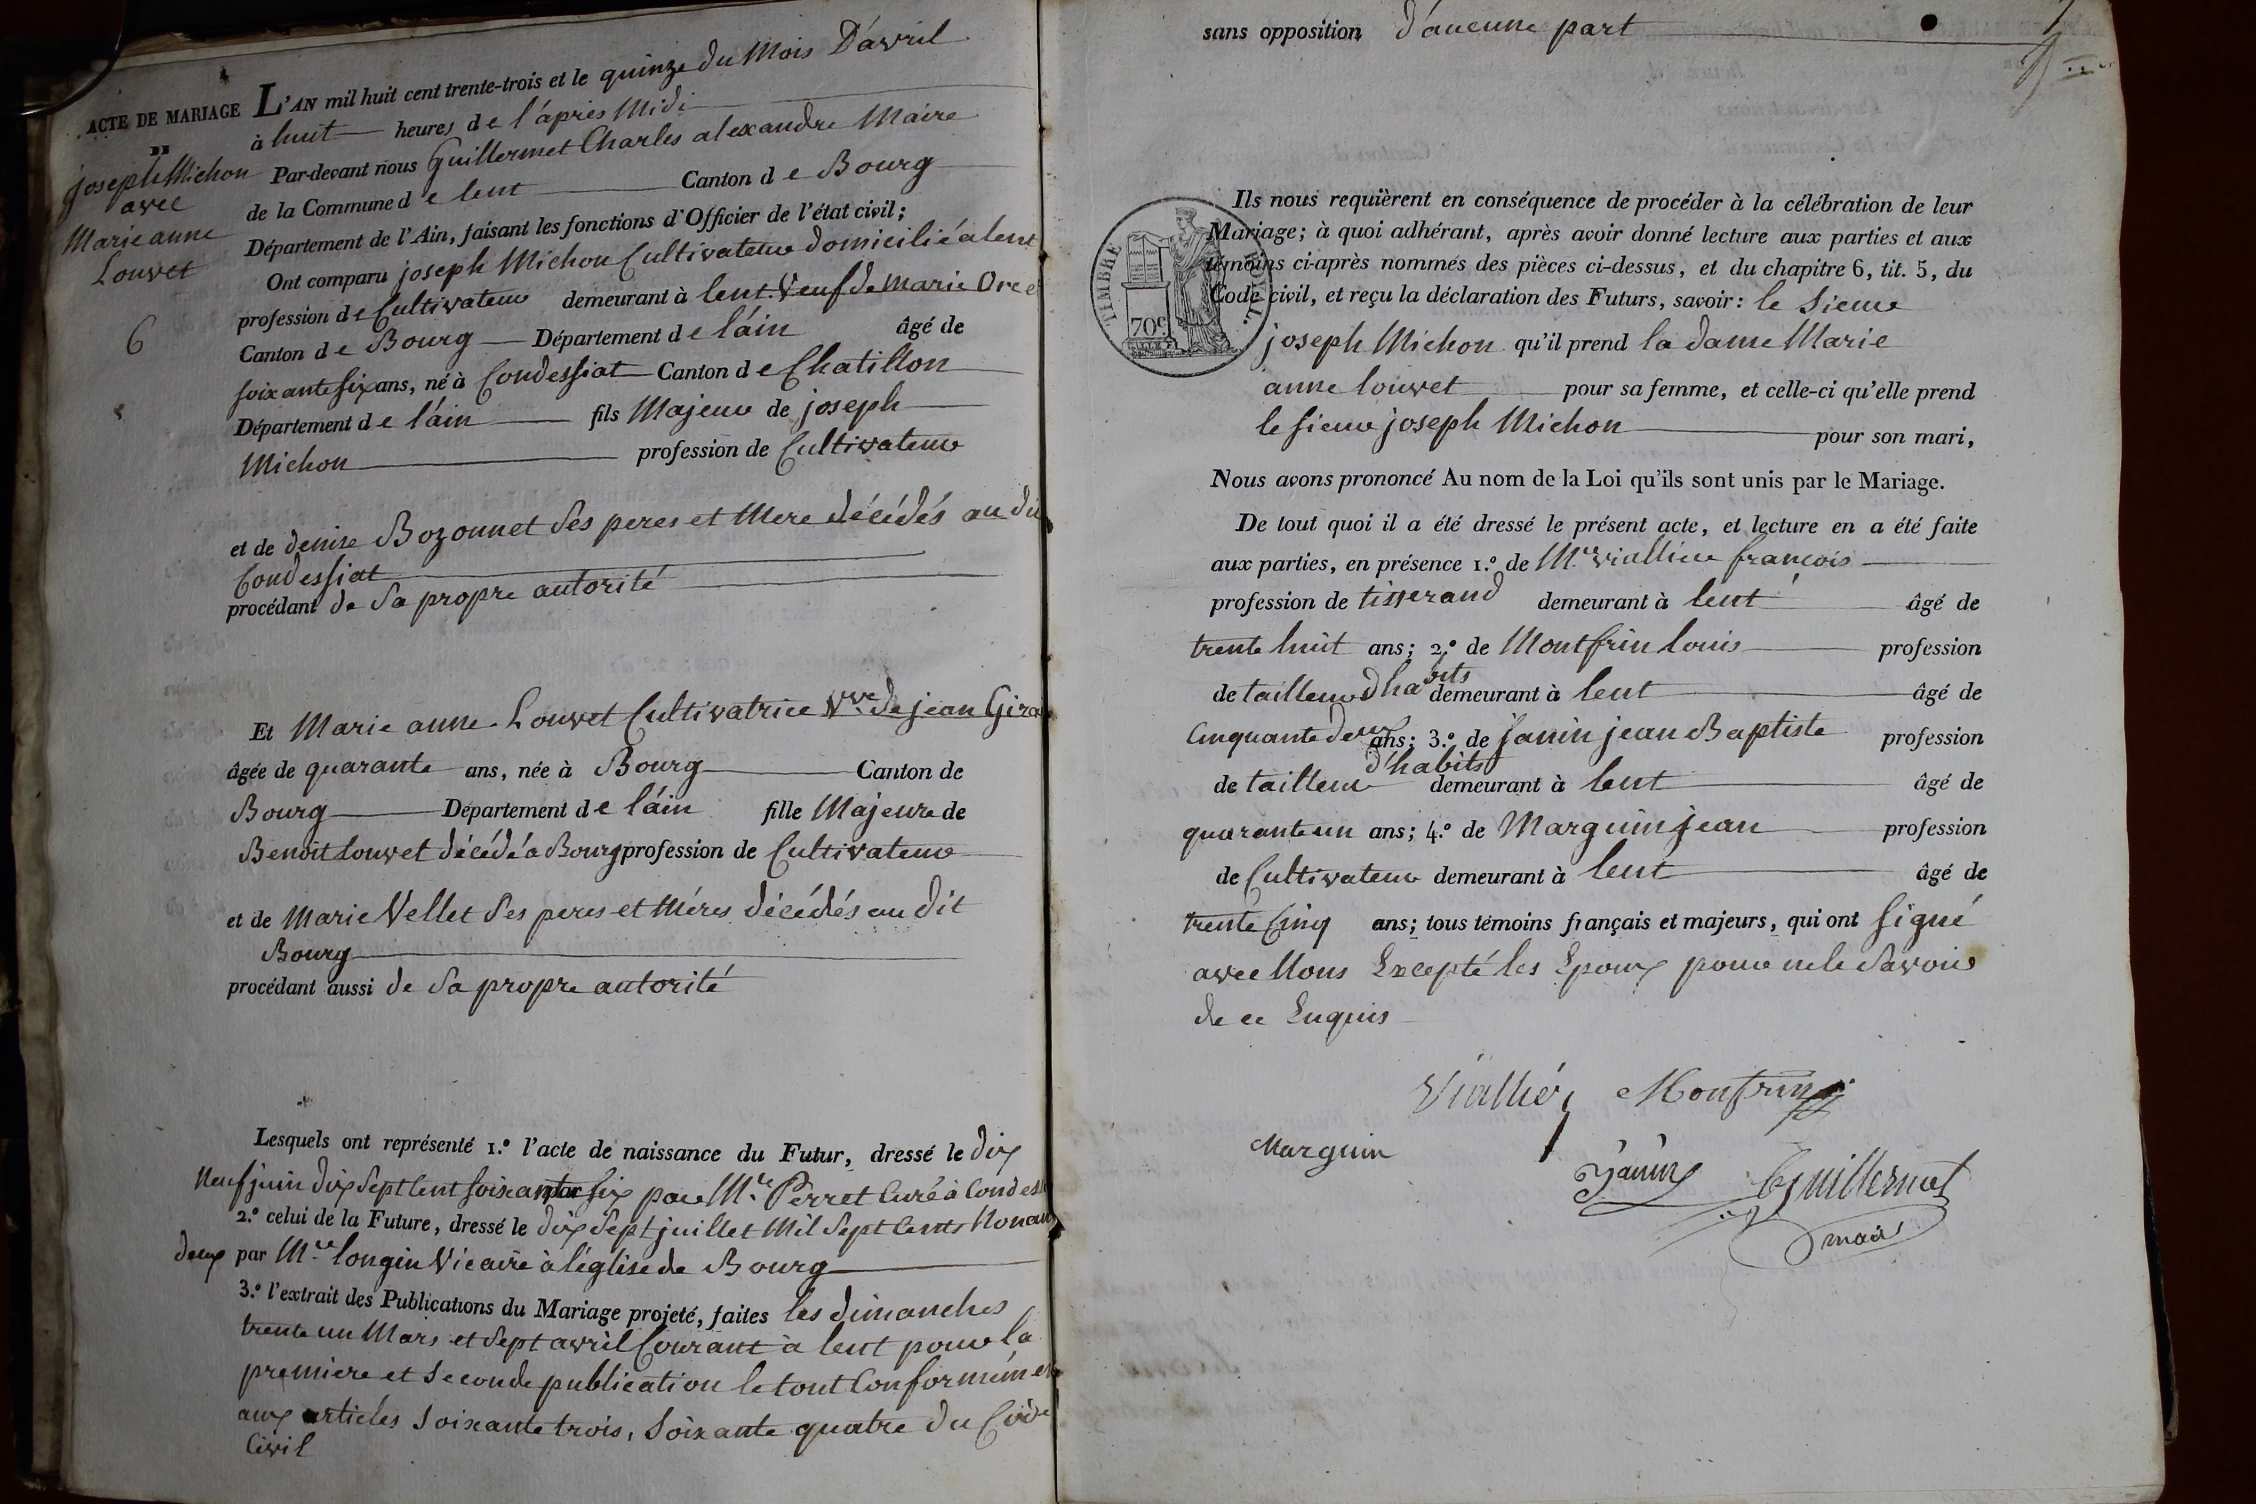 ACTE DE MARIAGE
DE
joseph Michon
avec
Marie anne
Louvet
6
L'AN mil huit cent trente-trois et le quinze du Mois D'avril
à huit heures de l'après Midi
Par-devant nous Guillermet Charles alexandre Maire
de la Commune de lent Canton de Bourg
Département de l'Ain, faisant les fonctions d'Officier de l'état civil;
Ont comparu joseph Michon Cultivateur domicilié a lent
profession de Cultivateur demeurant à lent Veuf de Marie
Canton de Bourg Département de l'áin âgé de
soixante six ans, né à Condessiat Canton de Chatillon
Département de l'áin fils Majeur de joseph
Michon profession de Cultivateur
et de denise Bozonnet Ses peres et Mere décédés au dit
Condessiat
procédant de Sa propre autorité
Et Marie anne Louvet Cultivatrice Vve de jean
âgée de quarante ans, née à Bourg Canton de
Bourg Département de l'áin fille Majeure de
Benoit Louvet décédé a Bourg profession de Cultivateur
et de Marie Vellet Ses peres et Méres décédés au dit
Bourg
procédant aussi de Sa propre autorité
Lesquels ont représenté 1.º l'acte de naissance du Futur, dressé le dix
Neuf juin dix Sept Cent soixante six par Mre Perret Curé à
2.º celui de la Future, dressé le dix Sept juillet Mil Sept Cents
deux par Mre longin Vicaire à l'église de Bourg
3.º l'extrait des Publications du Mariage projeté, faites les dimanches
trente un Mars et Sept avril Courant à lent pour la
premiere et Seconde publication le tout
aux articles Soixante trois, Soixante quatre du Code
Civil
sans opposition d'aucune part
TIMBRE ROYAL.
70c
Ils nous requièrent en conséquence de procéder à la célébration de leur
Mariage; à quoi adhérant, après avoir donné lecture aux parties et aux
témoins ci-après nommés des pièces ci-dessus, et du chapitre 6, tit. 5, du
Code civil, et reçu la déclaration des Futurs, savoir: le Sieur
joseph Michon qu'il prend la dame Marie
anne louvet pour sa femme, et celle-ci qu'elle prend
le sieur joseph Michon pour son mari,
Nous avons prononcé Au nom de la Loi qu'ils sont unis par le Mariage.
De tout quoi il a été dressé le présent acte, et lecture en a été faite
aux parties, en présence 1.º de Mr viallier francois
profession de tisserand demeurant à lent âgé de
trente huit ans; 2.º de Montfrin Louis profession
de tailleur d'habits demeurant à lent âgé de
Cinquante deux ans; 3.º de Janin jean Baptiste profession
de tailleur d'habits demeurant à lent âgé de
quarante un ans; 4.º de Marguin jean profession
de Cultivateur demeurant à lent âgé de
trente Cinq ans; tous témoins français et majeurs, qui ont signé
avec Nous Excepté les Epoux pour ne le Savoir
de ce Enquis
Viallier Monfrin
Marguin
Janin Guillermet
maire